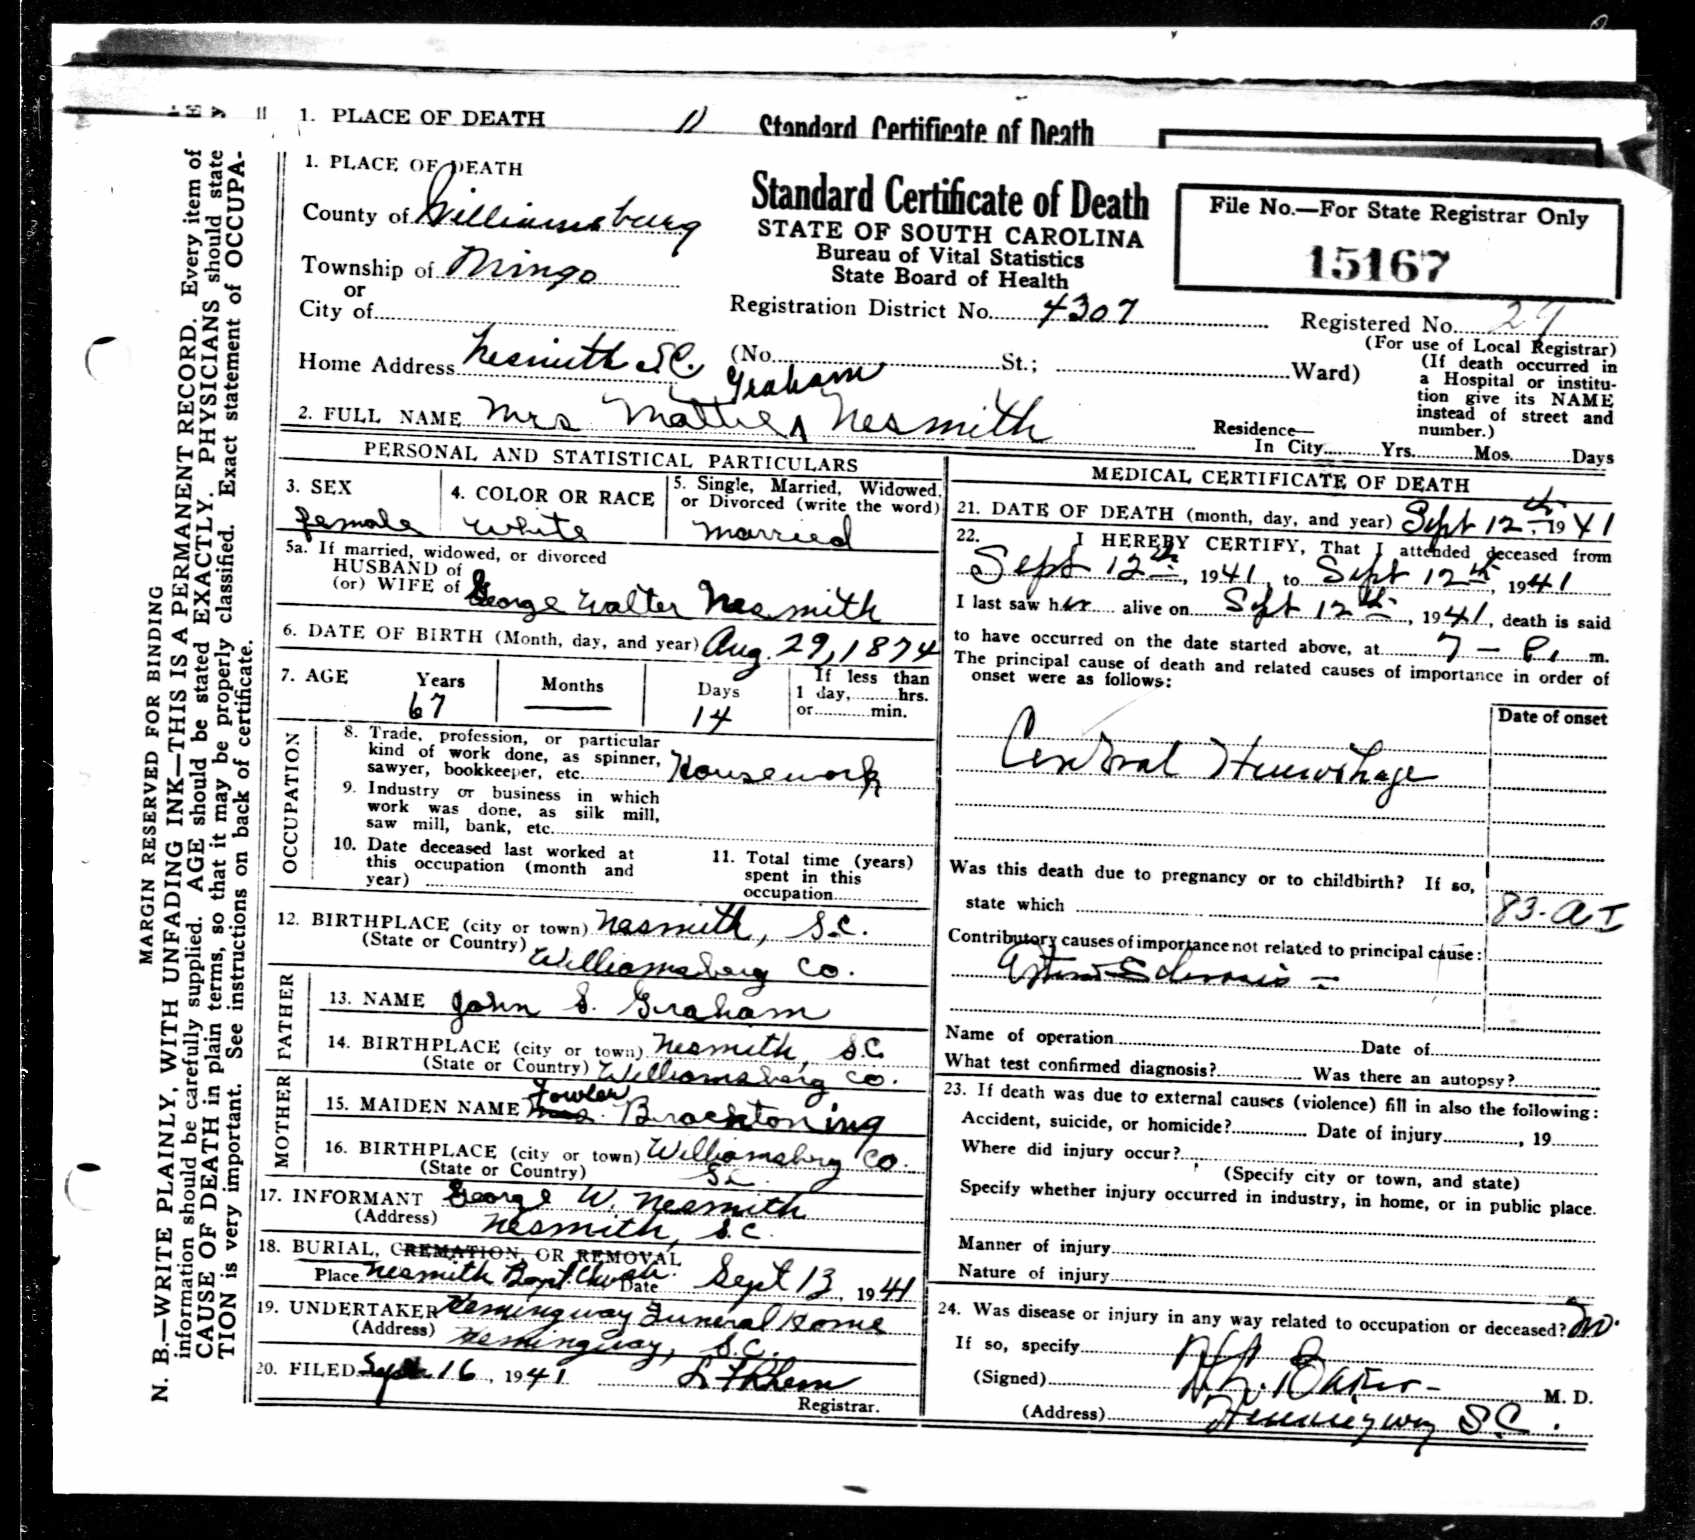 1. PLACE OF DEATH Standard Certificate of Death
1. PLACE OF DEATH
County of Williamsburg
Township of Mingo
or
City of
Home Address Nesmith S.C. (No. St.; Ward)
Standard Certificate of Death
STATE OF SOUTH CAROLINA
Bureau of Vital Statistics
State Board of Health
Registration District No. 4307
File No.—For State Registrar Only
15167
Registered No. 29
(For use of Local Registrar)
(If death occurred in
a Hospital or institu-
tion give its NAME
instead of street and
number.)
Graham
2. FULL NAME Mrs Mattie Nesmith
Residence—
In City Yrs. Mos. Days
PERSONAL AND STATISTICAL PARTICULARS
3. SEX
female
4. COLOR OR RACE
White
5. Single, Married, Widowed,
or Divorced (write the word)
married
5a. If married, widowed, or divorced
HUSBAND of
(or) WIFE of George Walter Nesmith
6. DATE OF BIRTH (Month, day, and year) Aug. 29, 1874
7. AGE Years Months Days If less than
1 day, hrs.
or min.
67 — 14
OCCUPATION
8. Trade, profession, or particular
kind of work done, as spinner,
sawyer, bookkeeper, etc. Housework
9. Industry or business in which
work was done, as silk mill,
saw mill, bank, etc.
10. Date deceased last worked at
this occupation (month and
year)
11. Total time (years)
spent in this
occupation
12. BIRTHPLACE (city or town) Nesmith, S.C.
(State or Country) Williamsburg Co.
FATHER
13. NAME John S. Graham
14. BIRTHPLACE (city or town) Nesmith, S.C.
(State or Country) Williamsburg Co.
MOTHER
Fowler
15. MAIDEN NAME Mrs. Brockton ing
16. BIRTHPLACE (city or town) Williamsburg Co.
(State or Country) S.C.
17. INFORMANT George W. Nesmith
(Address) Nesmith, S.C.
18. BURIAL, CREMATION, OR REMOVAL
Place Nesmith Bapt. Church. Date Sept 13, 1941
19. UNDERTAKER Hemingway Funeral Home
(Address) Hemingway, S.C.
20. FILED Sept 16, 1941
Registrar.
MEDICAL CERTIFICATE OF DEATH
21. DATE OF DEATH (month, day, and year) Sept 12th, 1941
22. I HEREBY CERTIFY, That I attended deceased from
Sept 12th, 1941, to Sept 12th, 1941
I last saw her alive on Sept 12th, 1941, death is said
to have occurred on the date started above, at 7 – P. m.
The principal cause of death and related causes of importance in order of
onset were as follows:
Date of onset
Cerebral Hemorrhage
Was this death due to pregnancy or to childbirth? If so,
state which 83-a I
Contributory causes of importance not related to principal cause:
Name of operation Date of
What test confirmed diagnosis? Was there an autopsy?
23. If death was due to external causes (violence) fill in also the following:
Accident, suicide, or homicide? Date of injury , 19
Where did injury occur?
(Specify city or town, and state)
Specify whether injury occurred in industry, in home, or in public place.
Manner of injury
Nature of injury
24. Was disease or injury in any way related to occupation or deceased? No.
If so, specify
(Signed) M. D.
(Address) Hemingway S.C.
MARGIN RESERVED FOR BINDING
N. B.—WRITE PLAINLY, WITH UNFADING INK—THIS IS A PERMANENT RECORD. Every item of
information should be carefully supplied. AGE should be stated EXACTLY. PHYSICIANS should state
CAUSE OF DEATH in plain terms, so that it may be properly classified. Exact statement of OCCUPA-
TION is very important. See instructions on back of certificate.